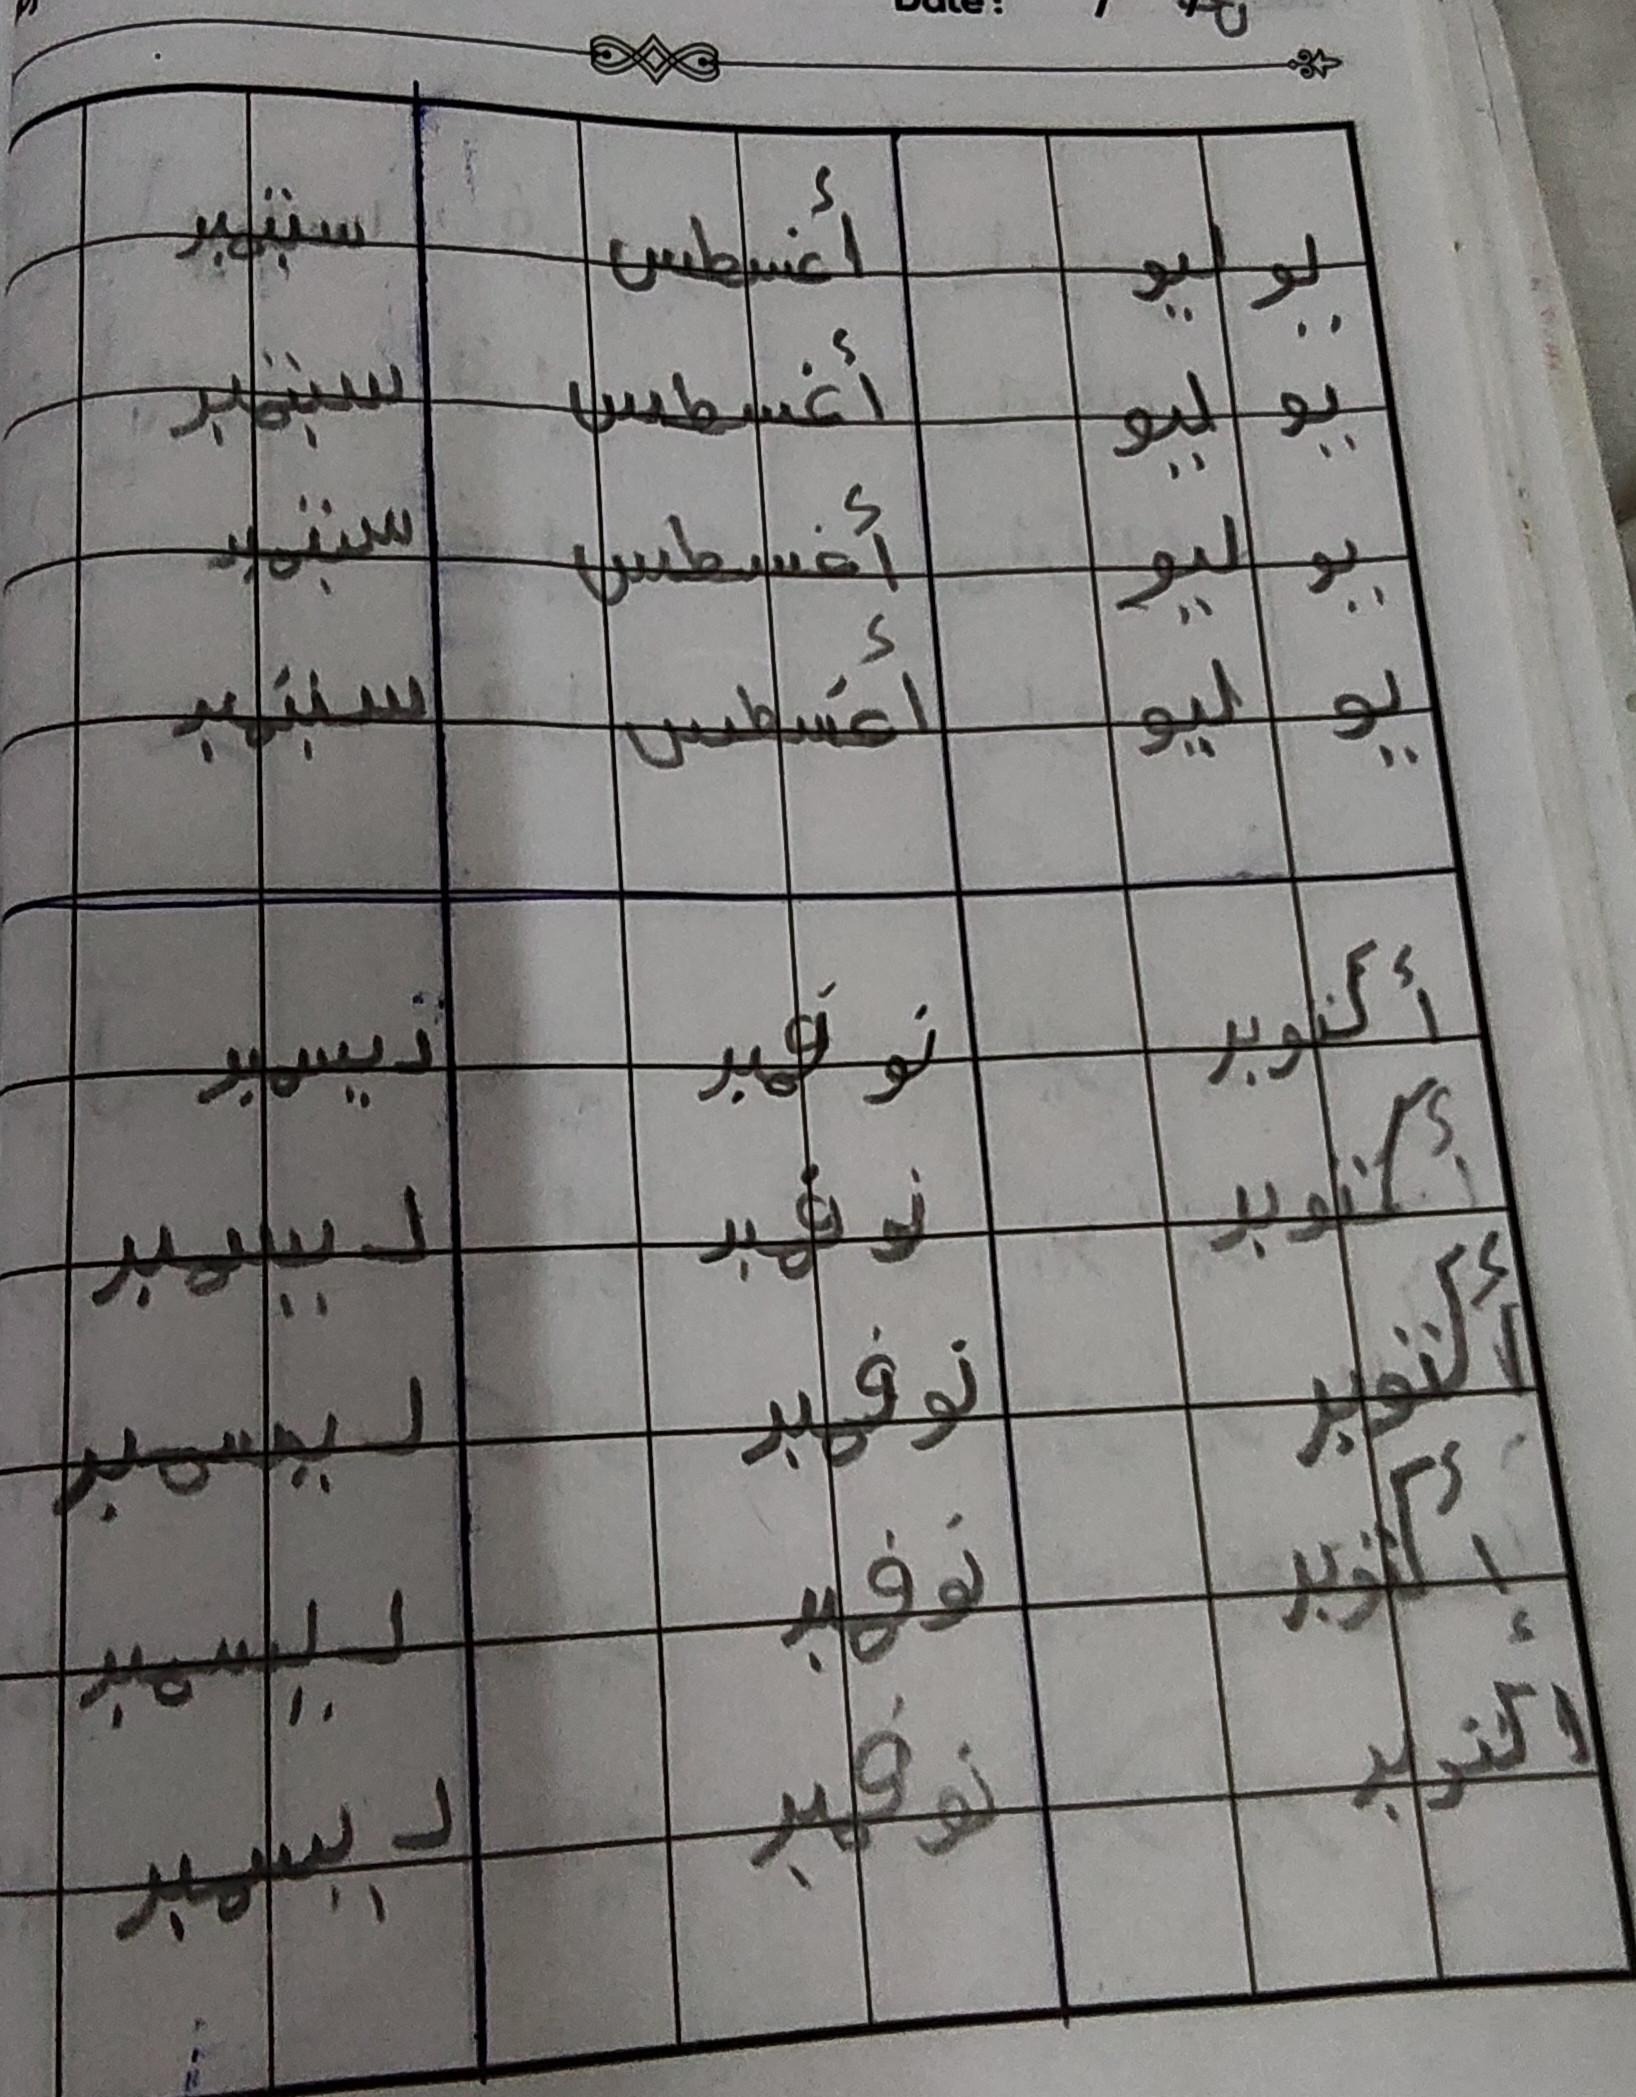 Date: / /
يوليو أغسطس سبتمبر
يوليو أغسطس سبتمبر
يوليو أغسطس سبتمبر
يوليو أغسطس سبتمبر
أكتوبر نوفمبر ديسمبر
أكتوبر نوفمبر ديسمبر
أكتوبر نوفمبر ديسمبر
أكتوبر نوفمبر ديسمبر
أكتوبر نوفمبر ديسمبر